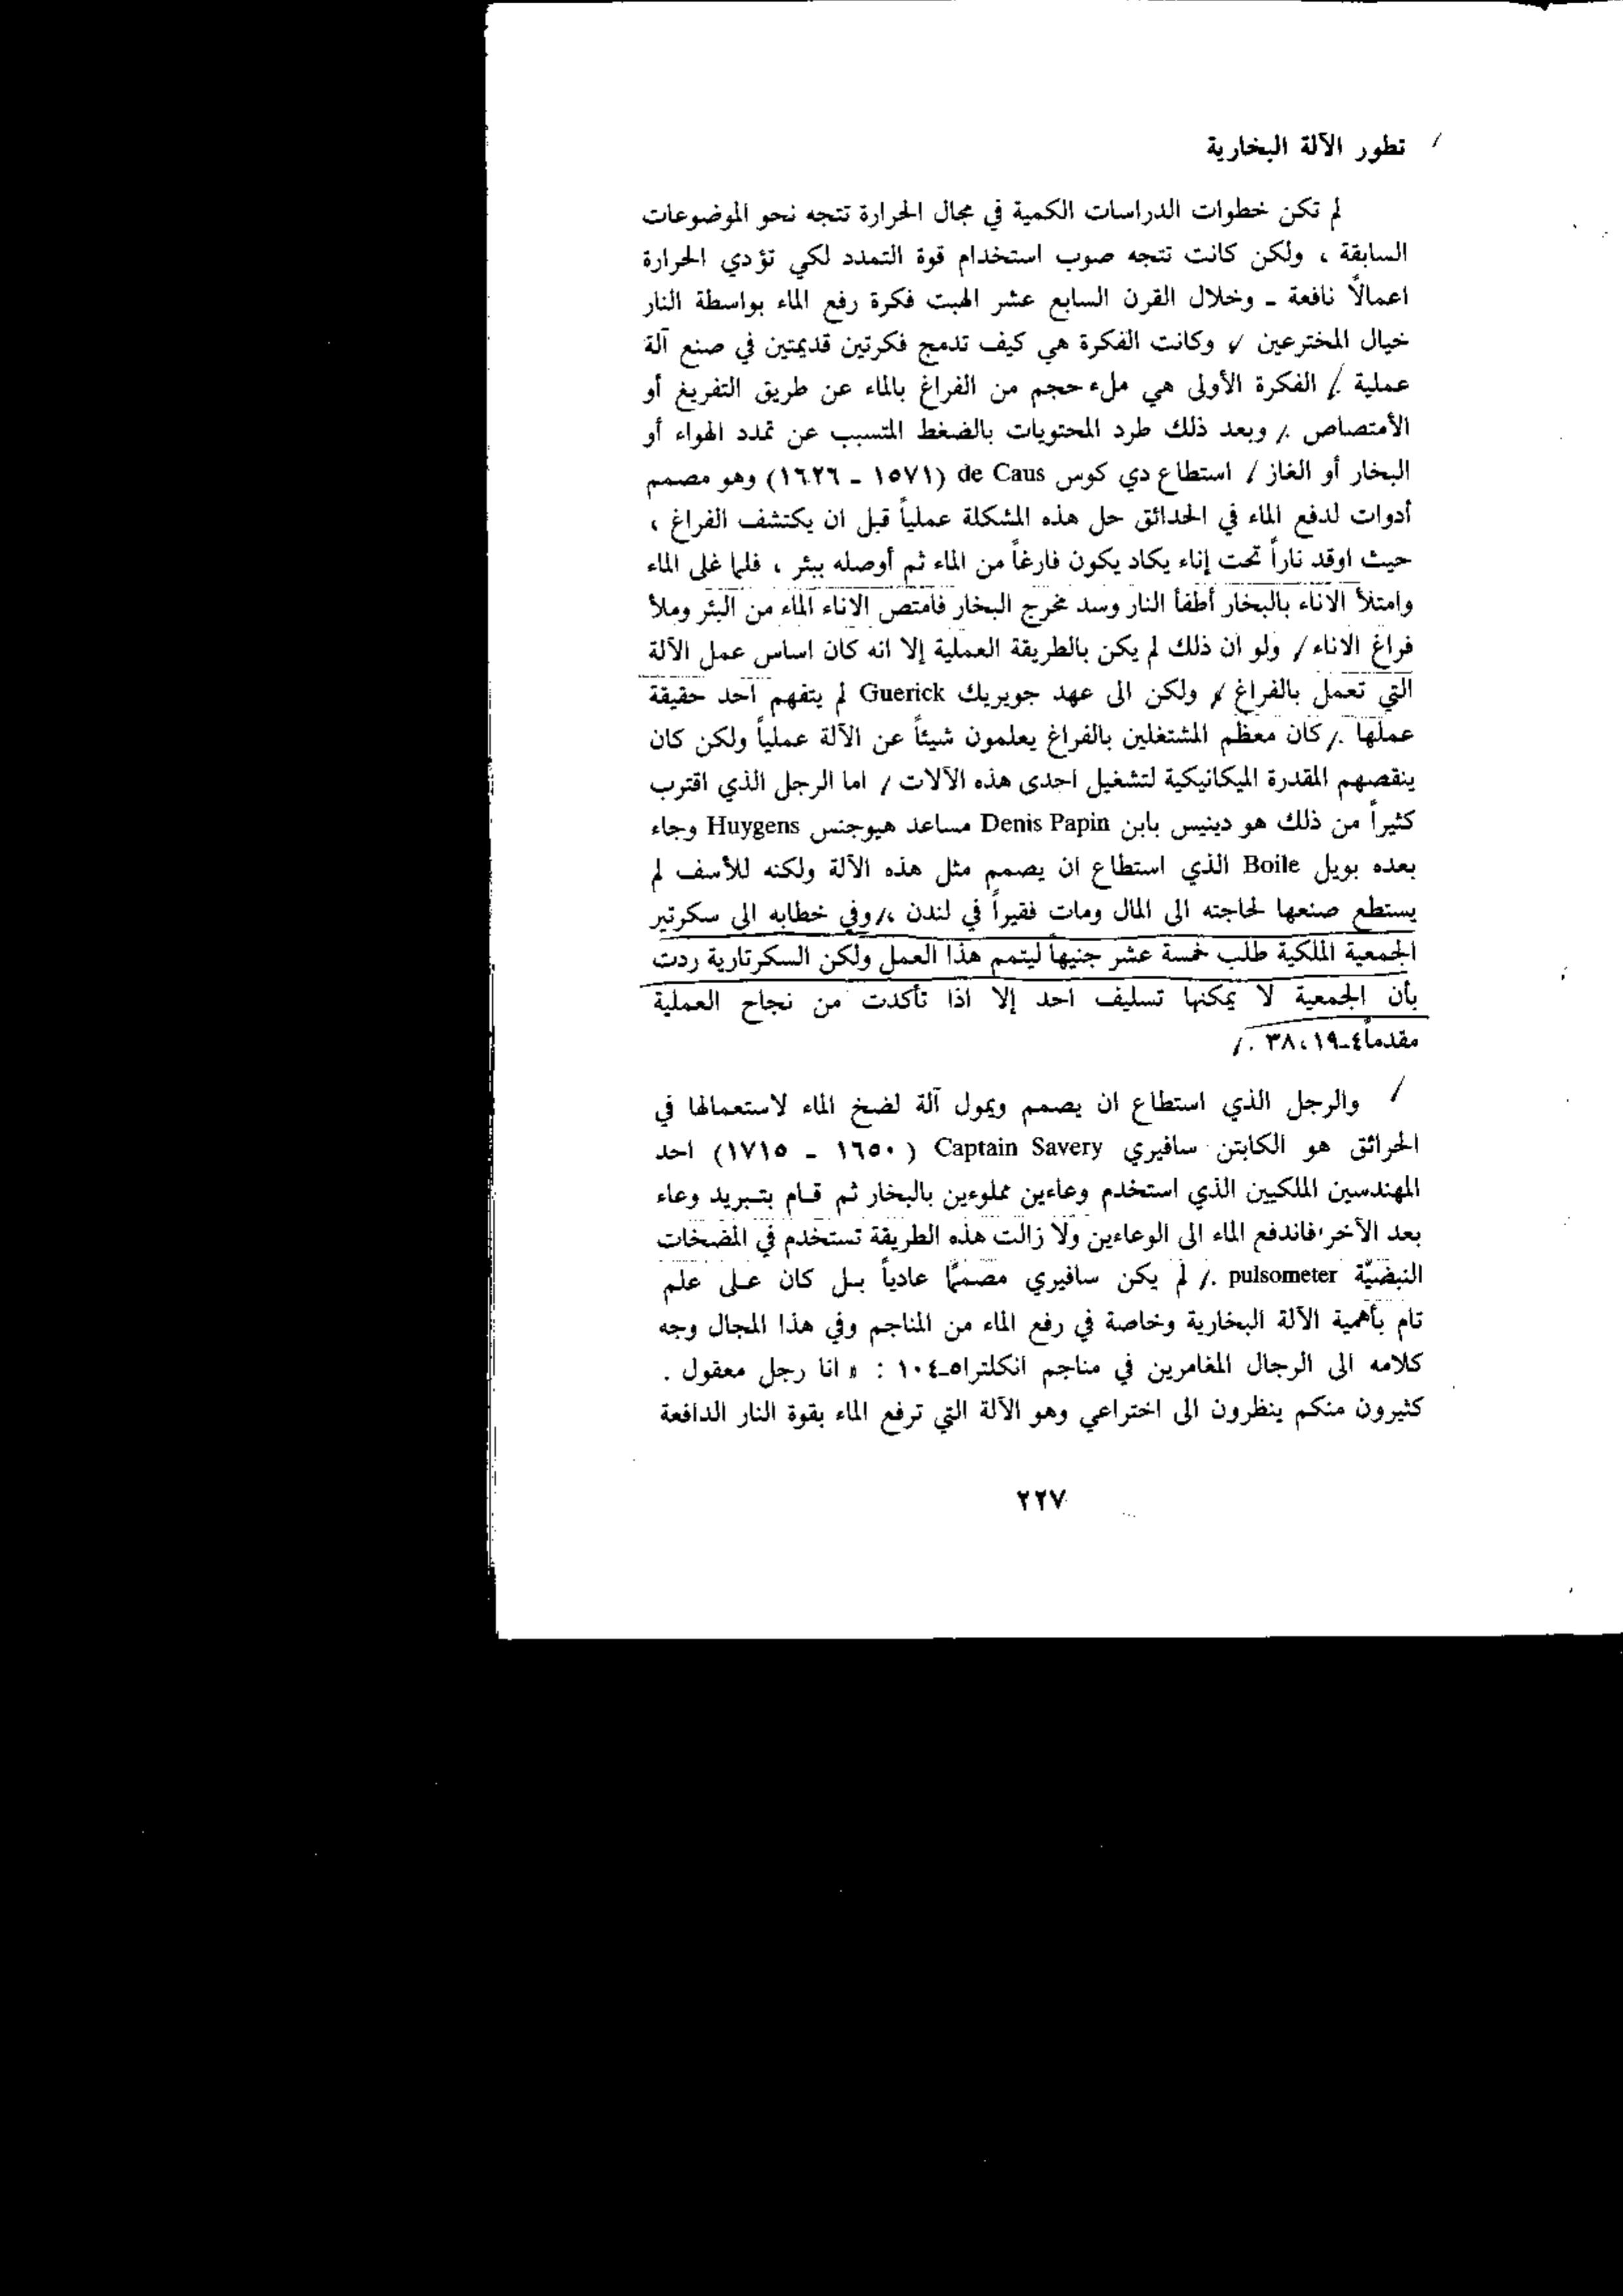 تطور الآلة البخارية
لم تكن خطوات الدراسات الكمية في مجال الحرارة تتجه نحو الموضوعات
السابقة ، ولكن كانت تتجه صوب استخدام قوة التمدد لكي تؤدي الحرارة
اعمالاً نافعة ـ وخلال القرن السابع عشر الهبت فكرة رفع الماء بواسطة النار
خيال المخترعين ، وكانت الفكرة هي كيف تدمج فكرتين قديمتين في صنع آلة
عملية . الفكرة الأولى هي ملء حجم من الفراغ بالماء عن طريق التفريغ أو
الأمتصاص . وبعد ذلك طرد المحتويات بالضغط المتسبب عن تمدد الهواء أو
البخار أو الغاز / استطاع دي كوس de Caus (١٥٧١ ـ ١٦٢٦) وهو مصمم
أدوات لدفع الماء في الحدائق حل هذه المشكلة عملياً قبل ان يكتشف الفراغ ،
حيث اوقد ناراً تحت إناء يكاد يكون فارغاً من الماء ثم أوصله ببئر ، فلما غلى الماء
وامتلأ الاناء بالبخار أطفأ النار وسد مخرج البخار فامتص الاناء الماء من البئر وملأ
فراغ الاناء / ولو ان ذلك لم يكن بالطريقة العملية إلا انه كان اساس عمل الآلة
التي تعمل بالفراغ ، ولكن الى عهد جويريك Guerick لم يتفهم احد حقيقة
عملها . كان معظم المشتغلين بالفراغ يعلمون شيئاً عن الآلة عملياً ولكن كان
ينقصهم المقدرة الميكانيكية لتشغيل احدى هذه الآلات / اما الرجل الذي اقترب
كثيراً من ذلك هو دينيس بابن Denis Papin مساعد هيوجنس Huygens وجاء
بعده بويل Boile الذي استطاع ان يصمم مثل هذه الآلة ولكنه للأسف لم
يستطع صنعها لحاجته الى المال ومات فقيراً في لندن ، وفي خطابه الى سكرتير
الجمعية الملكية طلب خمسة عشر جنيهاً ليتمم هذا العمل ولكن السكرتارية ردت
بأن الجمعية لا يمكنها تسليف احد إلا اذا تأكدت من نجاح العملية
مقدماً٤ـ٣٨،١٩ .
والرجل الذي استطاع ان يصمم ويمول آلة لضخ الماء لاستعمالها في
الحرائق هو الكابتن سافيري Captain Savery (١٦٥٠ ـ ١٧١٥) احد
المهندسين الملكيين الذي استخدم وعاءين مملوءين بالبخار ثم قام بتبريد وعاء
بعد الآخر فاندفع الماء الى الوعاءين ولا زالت هذه الطريقة تستخدم في المضخات
النبضيّة pulsometer . لم يكن سافيري مصممًا عادياً بل كان على علم
تام بأهمية الآلة البخارية وخاصة في رفع الماء من المناجم وفي هذا المجال وجه
كلامه الى الرجال المغامرين في مناجم انكلترا٥ـ١٠٤ : « انا رجل معقول .
كثيرون منكم ينظرون الى اختراعي وهو الآلة التي ترفع الماء بقوة النار الدافعة
٢٢٧